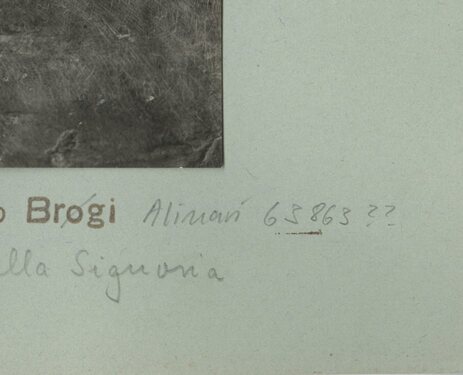 o Brogi Alinari 63863 ??
ella Signoria